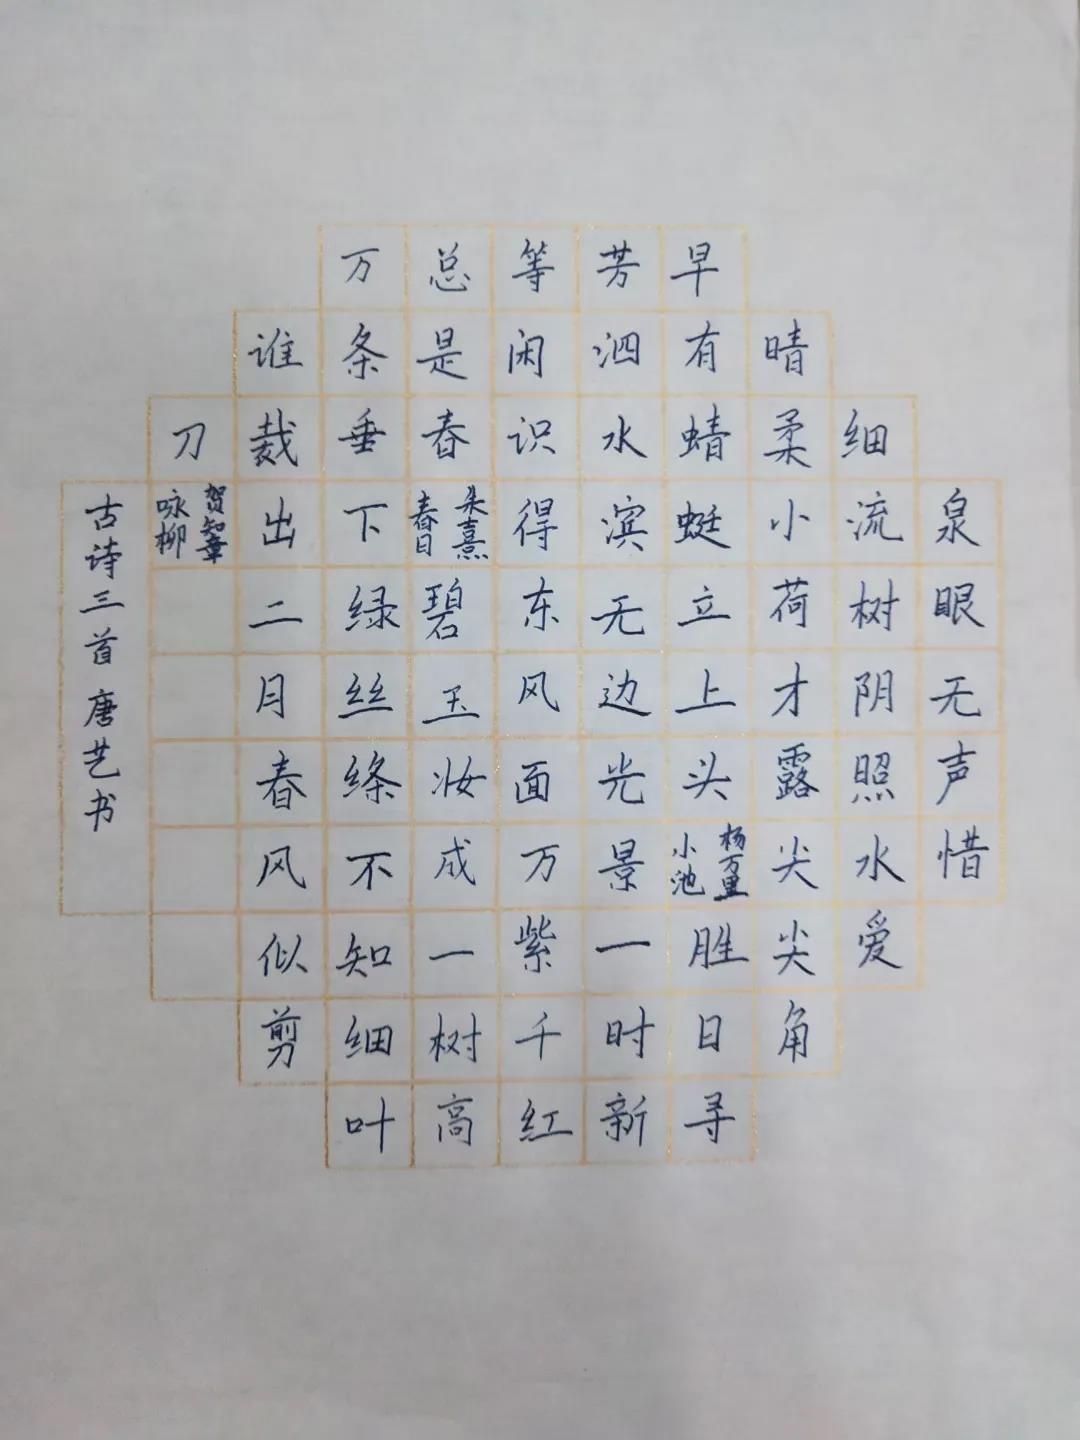 泉眼无声惜
细流树阴照水爱
晴柔小荷才露尖尖角
早有蜻蜓立上头 杨万里 小池 胜日寻
芳泗水滨无边光景一时新
等闲识得东风面万紫千红
总是春 朱熹 春日 碧玉妆成一树高
万条垂下绿丝绦不知细叶
谁裁出二月春风似剪
刀 贺知章 咏柳
古诗三首 唐艺书